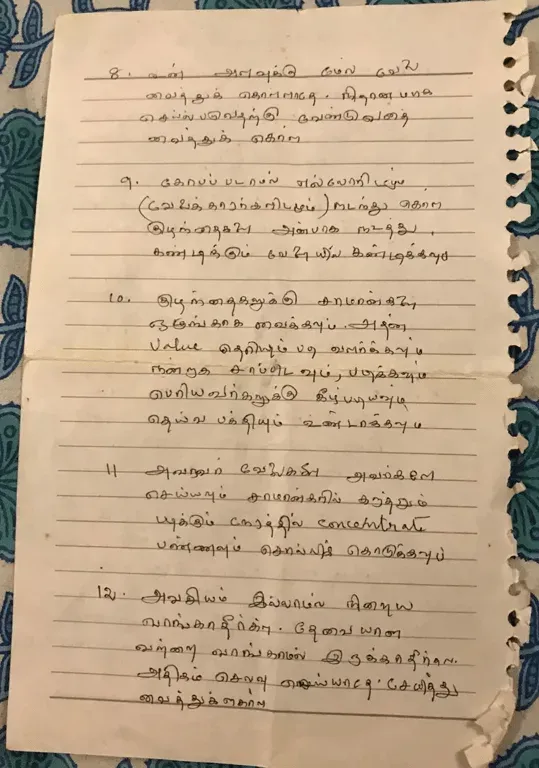 8. உன் அளவுக்கு மேல் வேலை
வைத்துக் கொள்ளாதே. நிதானமாக
செயல்படுவதற்கு வேண்டுவதை
வைத்துக் கொள்
9. கோபப்படாமல் எல்லோரிடமும்
(வேலைக்காரர்களிடமும்) நடந்து கொள்
குழந்தைகளை அன்பாக நடத்து.
கண்டிக்கும் வேளையில் கண்டிக்கவும்
10. குழந்தைகளுக்கு சாமான்களை
ஒழுங்காக வைக்கவும். அதன்
Value தெரியும்படி வளர்க்கவும்
நன்றாக சாப்பிடவும், படிக்கவும்
பெரியவர்களுக்கு கீழ்படியவும்
தெய்வ பக்தியும் உண்டாக்கவும்
11 அவரவர் வேலைகளை அவர்களே
செய்யவும் சாமான்களில் கருத்தும்
படிக்கும் நேரத்தில் concentrate
பண்ணவும் சொல்லிக் கொடுக்கவும்
12. அவசியம் இல்லாமல் நிறைய
வாங்காதீர்கள். தேவையான
வற்றை வாங்காமல் இருக்காதீர்கள்.
அதிகம் செலவு செய்யாதே. சேமித்து
வைத்துக்கொள்